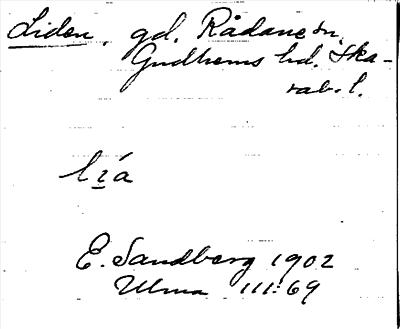 Liden, gd. Rådane sn.
Gudhems hd. Ska-
rab. l.
E. Sandberg 1902
Ulma 111:69